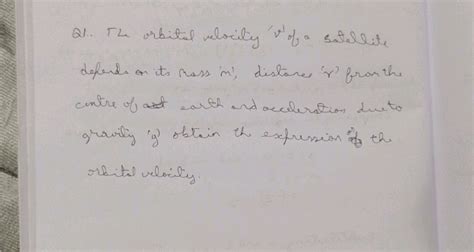 Q1. The orbital velocity 'v' of a satellite
depends on its mass 'm', distance 'r' from the
centre of earth and acceleration due to
gravity 'g' obtain the expression of the
orbital velocity.